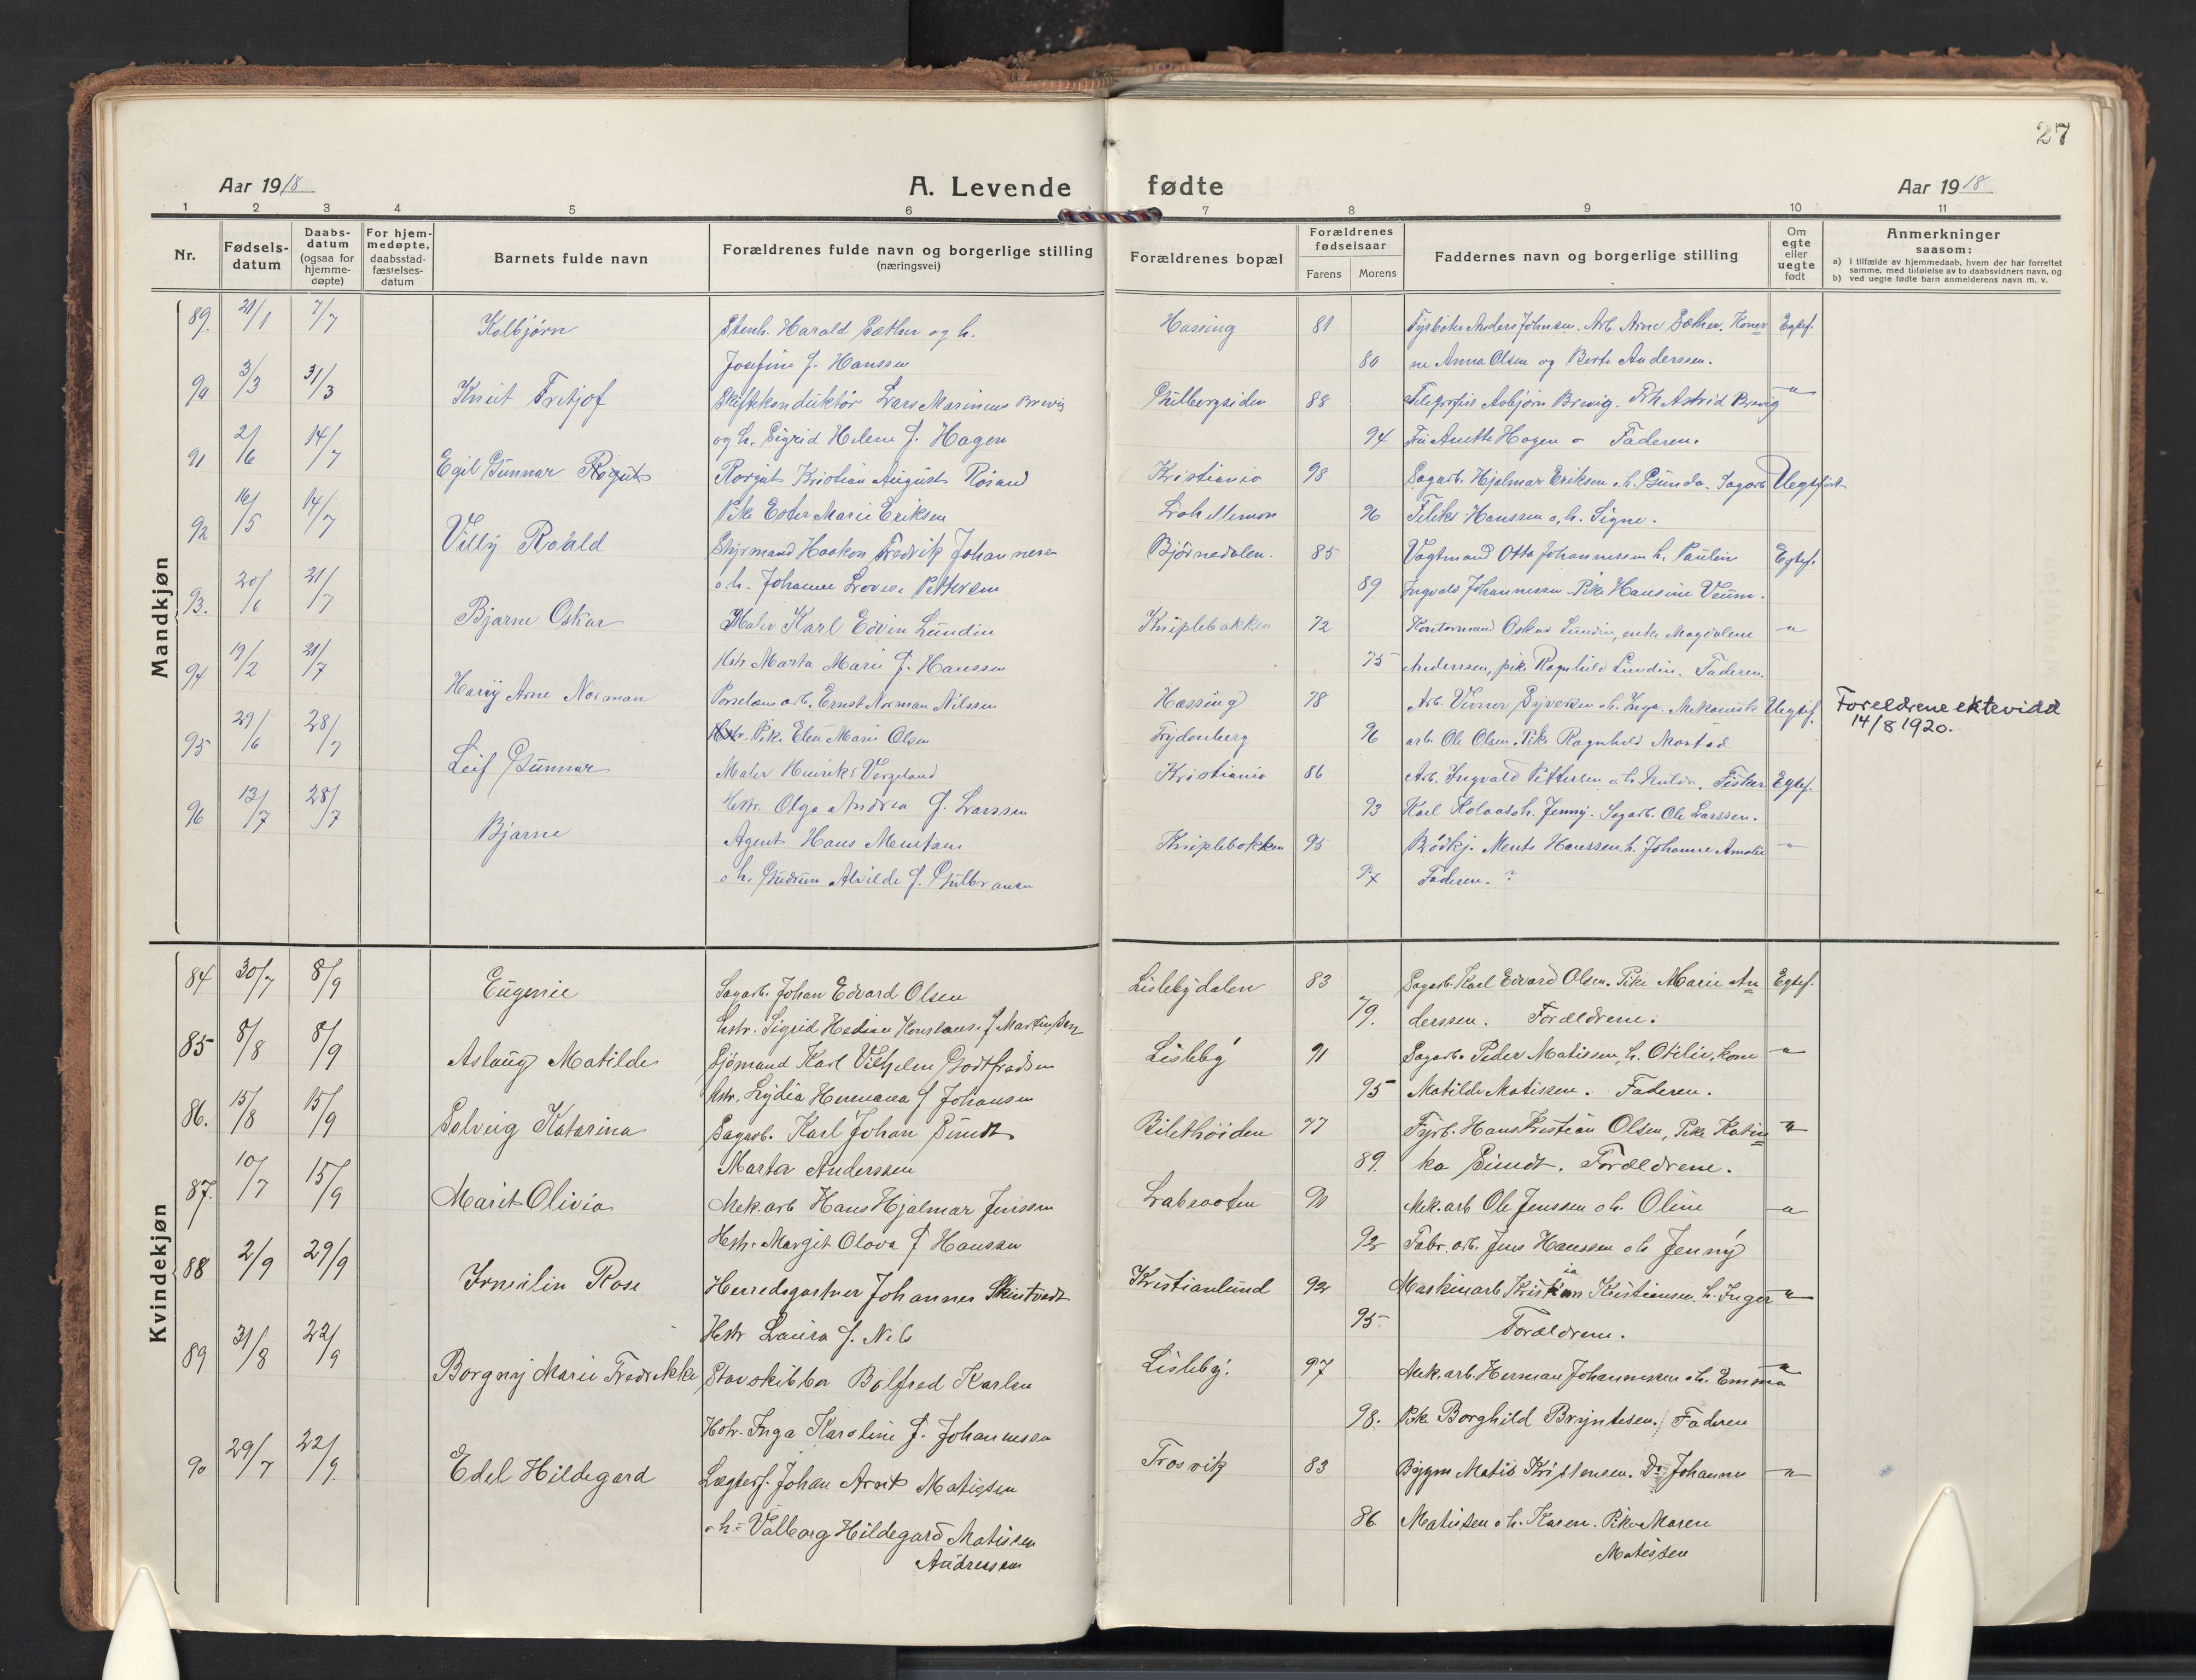 27
Aar 1918
A. Levende fødte
Aar 1918
1 2 3 4 5 6 7 8 9 10 11
Nr.
Fødsels-
datum
Daabs-
datum
(ogsaa for
hjemme-
døpte)
For hjem-
medøpte,
daabsstad-
fæstelses-
datum
Barnets fulde navn
Forældrenes fulde navn og borgerlige stilling
(næringsvei)
Forældrenes bopæl
Forældrenes
fødselsaar
Farens Morens
Faddernes navn og borgerlige stilling
Om
egte
eller
uegte
født
Anmerkninger
saasom:
a) i tilfælde av hjemmedaab, hvem der har forrettet
samme, med tilføielse av to daabsvidners navn, og
b) ved uegte fødte barn anmelderens navn m. v.
Mandkjøn
89. 21/1 7/7 Kolbjørn Stenh. Harald Sæther og h. Hassing 81 Fyrbøter Anders Johnsen. Arb. Arne Sæther. Koner Egtef.
Josefine f. Hanssen 80 ne Anna Olsen og Berte Anderssen.
90 3/3 31/3 Knut Fritjof Skiftekonduktør Lars Marinius Brevig Gulbergsiden 88 Asbjørn Brevig. Frk Astrid Brevig "
og h. Sigrid Helene f. Hagen 94 Fru Anette Hagen o Faderen.
91 2/6 14/7 Egil Gunnar Rørgut Kristian August Kristiania 98 Sagarb. Hjalmar Eriksen o.h. Gunda. Sagarb. Uegtefødt
Pike Ester Marie Eriksen 96 Feliks Hanssen o. h. Signe.
92 16/5 14/7 Villy Roald Styrmand Haakon Fredrik Johannesen Bjørnedalen. 85 Vagtmand Otto Johannessen h. Paulin Egtef.
o.h. Johanne Lovise Pettersen 89 Ingvald Johannessen. Pike Hansine Veum.
93. 20/6 21/7 Bjarne Oskar Maler Karl Edvin Lundin Kniplebakken 72 Kontormand Oskar Lundin, enke Magdalene "
Hstr Marta Marie f. Hanssen 75 Anderssen, pike Ragnhild Lundin. Faderen.
94 19/2 21/7 Harry Arne Norman Porselænsarb. Ernst Norman Nilssen Hassing 78 Arb. Verner Syversen o.h. Inga. Mekanisk Uegtef. Foreldrene ektevidd
14/8 1920.
Pike Elen Marie Olsen Frydenberg 96 arb. Ole Olsen. Pike Ragnhild
95 29/6 28/7 Leif Gunnar Maler Henrik Vergeland Kristiania 86 Arb. Ingvald Pettersen o.h. Hulda. Fisker Egtef.
Hstr. Olga Andrea f. Larssen 93 Karl Kolaas o.h. Jenny. Sagarb. Ole Larssen.
96 13/7 28/7 Bjarne Agent Hans Kniplebakken 95 Bødkj. Hanssen. h. Johanne Amalie "
o h. Gudrun Alvilde f. Gulbransen 97 Faderen. ?
Kvindekjøn
84 30/7 8/9 Eugenie Sagarb. Johan Edvard Olsen Lislebydalen 83 Sagarb. Karl Edvard Olsen. Pike Marie An Egtef.
Hstr. Sigrid Konstanse f Martinsen 79. derssen. Forældrene.
85 8/8 8/9 Aslaug Matilde Sjømand Karl Vilhelm Godtfredsen Lisleby 91 Sagarb. Peder Matissen, h. Otilie, kone "
Hstr. Lydia Hermana f Johansen 95 Matilde Matissen. Faderen.
86. 15/8 15/9 Solveig Katarina Sagarb. Karl Johan Sundt 77 Fyrb. Hans Kristian Olsen, Pike Katin "
Marta Anderssen 89. ka Sundt. Forældrene.
87. 10/7 15/9 Marit Olivia Mek.arb Hans Hjalmar Jenssen Labraaten 90 Mek.arb Ole Jenssen o h. Oline "
Hstr. Margit Olava f Hanssen 92 Fabr. arb. Jens Hanssen o h Jenny
88 2/9 29/9 Irmelin Rose Herredsgartner Johannes Skintvedt Kristianlund 92 Maskinarb Kristian Kristiansen. h. Inger "
Hstr Laura f. Nils 95 Forældrene.
89 31/8 22/9 Borgny Marie Fredrikke Stuvskibber Bolfred Karlsen Lisleby. 97 Mek.arb. Herman Johannessen o h. Emma "
Hstr. Inga Karoline f. Johannessen 98. Pike Borghild Bryntesen. Faderen
90 29/7 22/9 Edel Hildegard Lægterf. Johan Arnt Matissen Trosvik 83 Bygm Matis Kristensen. Do Johannes "
o h. Valborg Hildegard Matissen 86 Matissen o h. Karen. Pike Maren
Andreassen Matissen